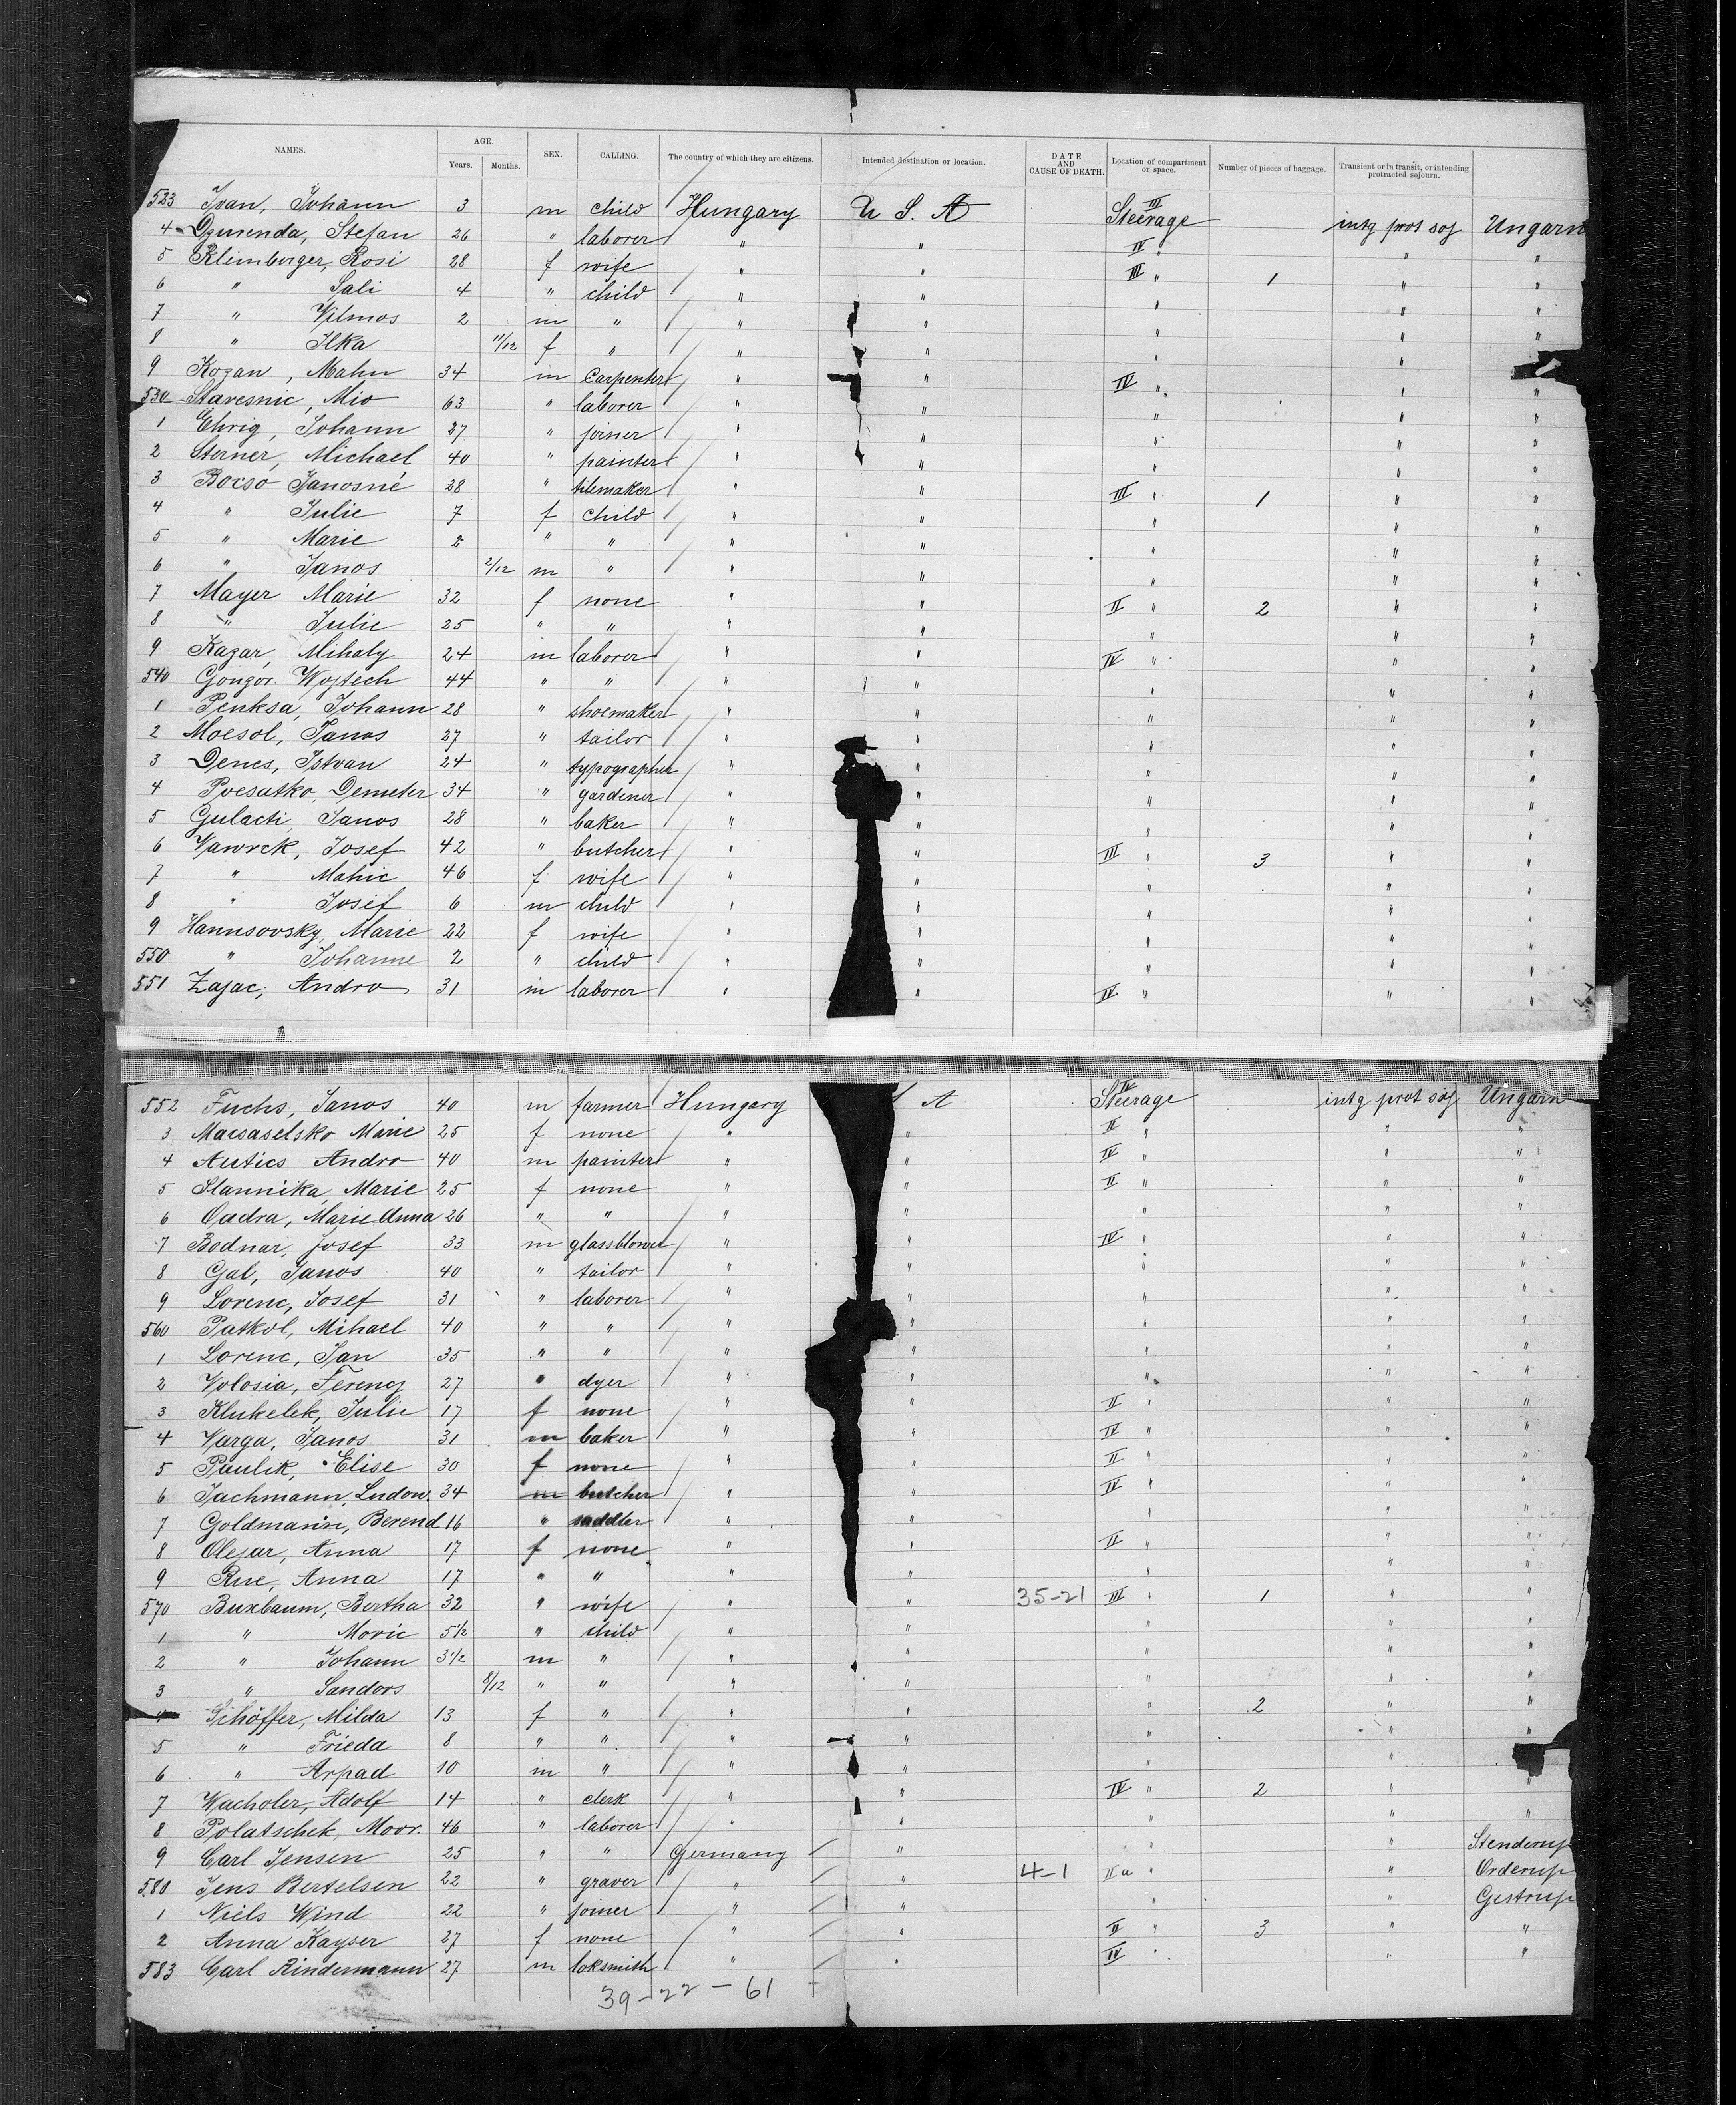 NAMES. AGE. Years. Months. SEX. CALLING. The country of which they are citizens. Intended destination or location. DATE AND CAUSE OF DEATH. Location of compartment or space. Number of pieces of baggage. Transient or in transit, or intending protracted sojourn.
523 Ivan, Johann 3 m child Hungary U S. A III Steerage intg prot soj Ungarn
4 Dzmenda, Stefan 26 " laborer " " IV " " "
5 Kleimberger, Rosi 28 f wife " " III " 1 " "
6 " Sali 4 " child " " " " "
7 " Vilmos 2 m " " " " " "
8 " Ilka 11/12 f " " " " "
9 Kozan, Mahn 34 m Carpenter " " IV " "
530 Staresnic, Mio 63 " laborer " " " " "
1 Ehrig, Johann 27 " joiner " " " " "
2 Sterner, Michael 40 " painter " " " " "
3 Bocso Janosné 28 " tilemaker " " III " 1 " "
4 " Julie 7 f child " " " " "
5 " Marie 2 " " " " " " "
6 " Janos 2/12 m " " " " " "
7 Mayer Marie 32 f none " " II " 2 " "
8 " Julie 25 " " " " " " "
9 Kazar, Mihaly 24 m laborer " " IV " " "
540 Gonzor Wojtech 44 " " " " " " "
1 Penksa, Johann 28 " shoemaker " " " " "
2 Moesol, Janos 27 " tailor " " " " "
3 Denes, Istvan 24 " typographer " " " " "
4 Pvesatko, Demeter 34 " gardener " " " " "
5 Gulacti, Janos 28 " baker " " " " "
6 Vawrek, Josef 42 " butcher " " III " 3 " "
7 " Mahie 46 f wife " " " " "
8 " Josif 6 m child " " " " "
9 Hannsovsky, Marie 22 f wife " " " " "
550 " Johanne 2 " child " " " " "
551 Zajac, Andro 31 m laborer " " IV " " "
552 Fuchs, Janos 40 m farmer Hungary A IV Steerage intg prot soj Ungarn
3 Macsaselsko Marie 25 f none " " II " " "
4 Autics Andro 40 m painter " " IV " " "
5 Slannika, Marie 25 f none " " II " " "
6 Oadra, Marie Anna 26 " " " " " " "
7 Bednar, Josef 33 m glassblower " " IV " " "
8 Gal, Janos 40 " tailor " " " " "
9 Lorenc, Josef 31 " laborer " " " " "
560 Patkol, Mihael 40 " " " " " " "
1 Lorenc, Jan 35 " " " " " " "
2 Volosia, Ferencz 27 " dyer " " " " "
3 Klukelek, Julie 17 f none " " II " " "
4 Varga, Janos 31 m baker " " IV " " "
5 Paulik, Elise 30 f none " " II " " "
6 Jachmann, Ludow. 34 m butcher " " IV " " "
7 Goldmann, Berend 16 " saddler " " " " "
8 Olejar, Anna 17 f none " " II " " "
9 Rue, Anna 17 " " " " " " "
570 Buxbaum, Bertha 32 " wife " " 35-21 III " 1 " "
1 " Moric 5 1/2 " child " " " " "
2 " Johann 3 1/2 m " " " " " "
3 " Sandors 8/12 " " " " " " "
4 Schöffer, Milda 13 f " " " " 2 " "
5 " Frieda 8 " " " " " " "
6 " Arpad 10 m " " " " "
7 Wacholer, Adolf 14 " clerk " " IV " 2 " "
8 Polatschek, Moor. 46 " laborer " " " " "
9 Carl Jensen 25 " " Germany " " " Stenderup
580 Jens Bertelsen 22 " graver " " 4-1 IIa " " Orderup
1 Niels Wind 22 " joiner " " " " Gestrup
2 Anna Kayser 27 f none " " II " 3 " "
583 Carl Rindermann 27 m loksmith " " IV " " "
39-22-61